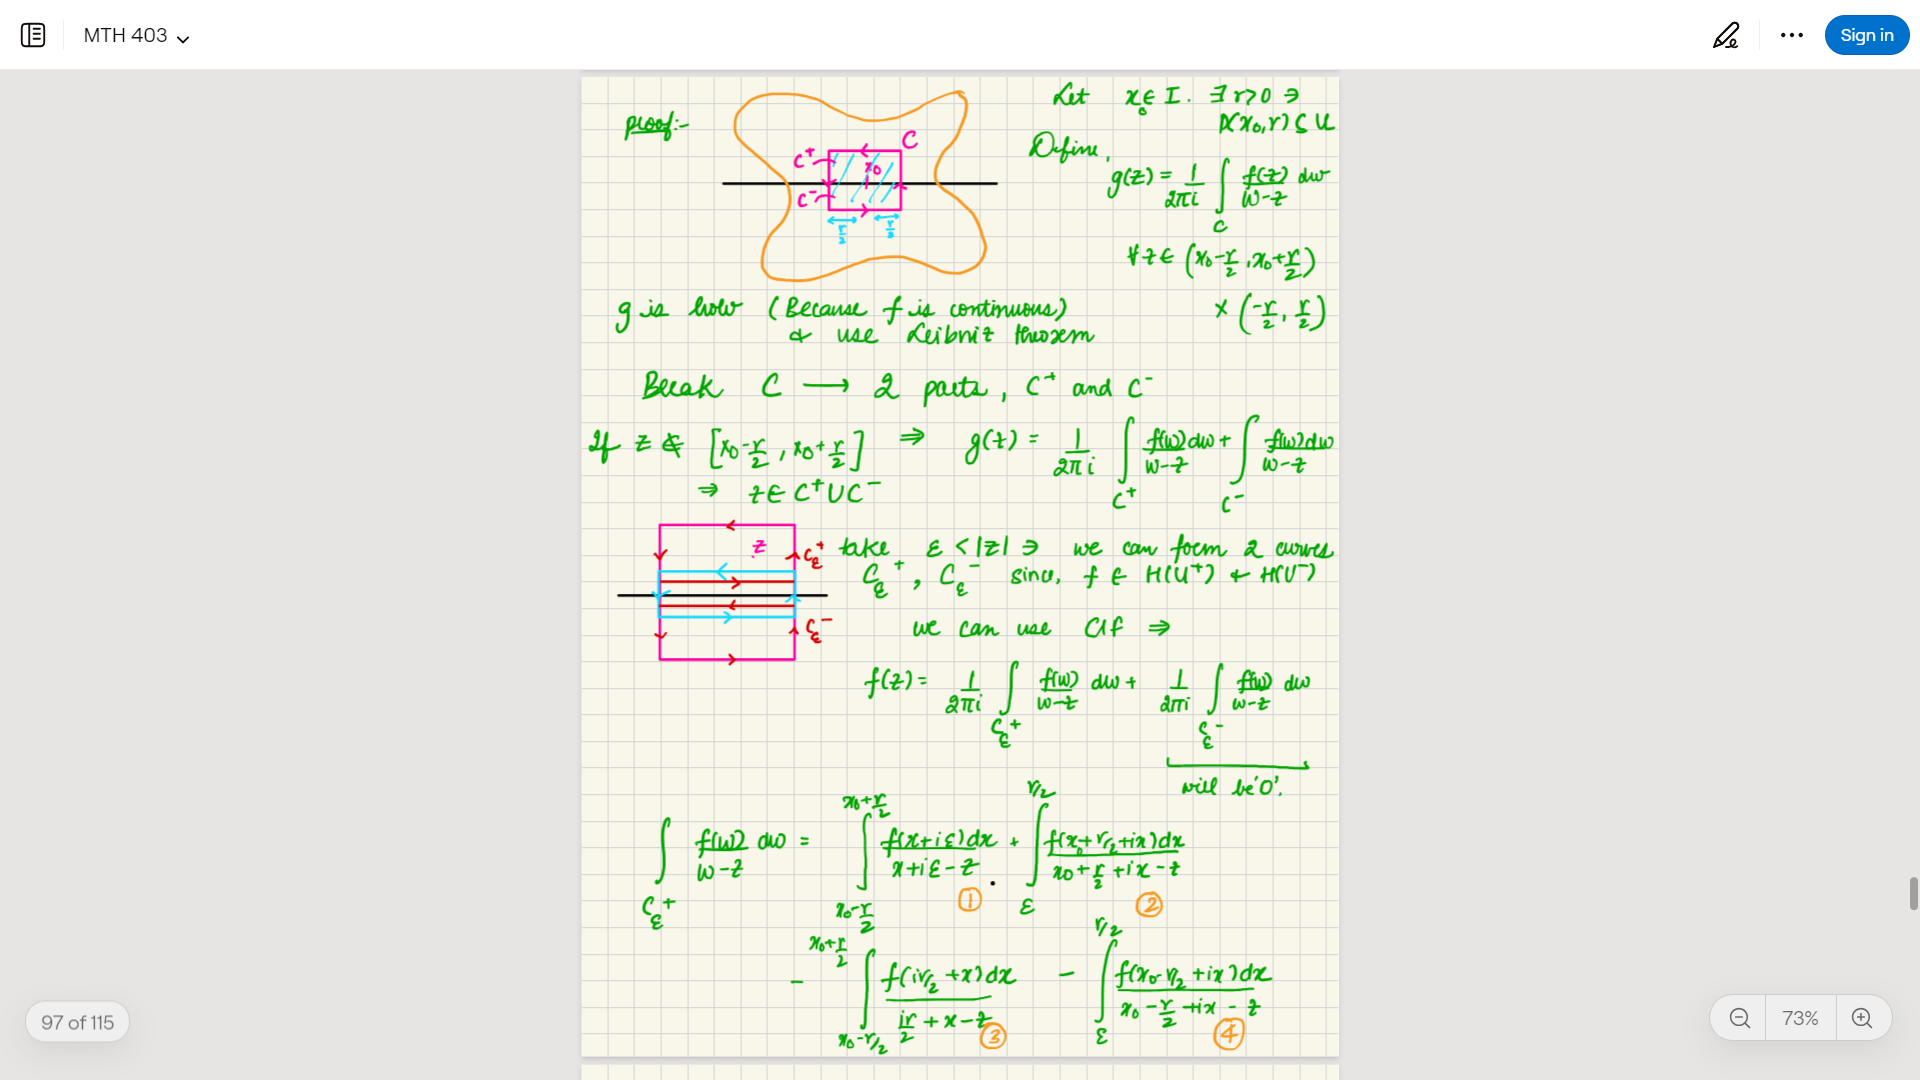 MTH 403
Sign in
proof:-
Let x₀ ∈ I. ∃ r>0 ∋
D(x₀,r) ⊆ U
Define,
g(z) = 1/2πi ∫_C f(z)/w-z dw
∀ z ∈ (x₀-r/2, x₀+r/2)
× (-r/2, r/2)
C
C⁺
x₀
C⁻
r/2 r/2
g is holo (Because f is continuous)
& use Leibniz theorem
Break C ⟶ 2 parts, C⁺ and C⁻
If z ∉ [x₀-r/2, x₀+r/2] ⇒ g(z) = 1/2πi ∫_C⁺ f(w)dw/w-z + ∫_C⁻ f(w)dw/w-z
⇒ z ∈ C⁺ ∪ C⁻
z
C_ε⁺
C_ε⁻
take ε < |z| ∋ we can form 2 curves
C_ε⁺, C_ε⁻ since, f ∈ H(U⁺) & H(U⁻)
we can use CIF ⇒
f(z) = 1/2πi ∫_C_ε⁺ f(w)/w-z dw + 1/2πi ∫_C_ε⁻ f(w)/w-z dw
will be '0'.
∫_C_ε⁺ f(w)/w-z dw = ∫_{x₀-r/2}^{x₀+r/2} f(x+iε)dx/x+iε-z ① + ∫_ε^{r/2} f(x₀+r/2+ix)dx/x₀+r/2+ix-z ②
- ∫_{x₀-r/2}^{x₀+r/2} f(ir/2+x)dx/ir/2+x-z ③ - ∫_ε^{r/2} f(x₀-r/2+ix)dx/x₀-r/2+ix-z ④
97 of 115
73%